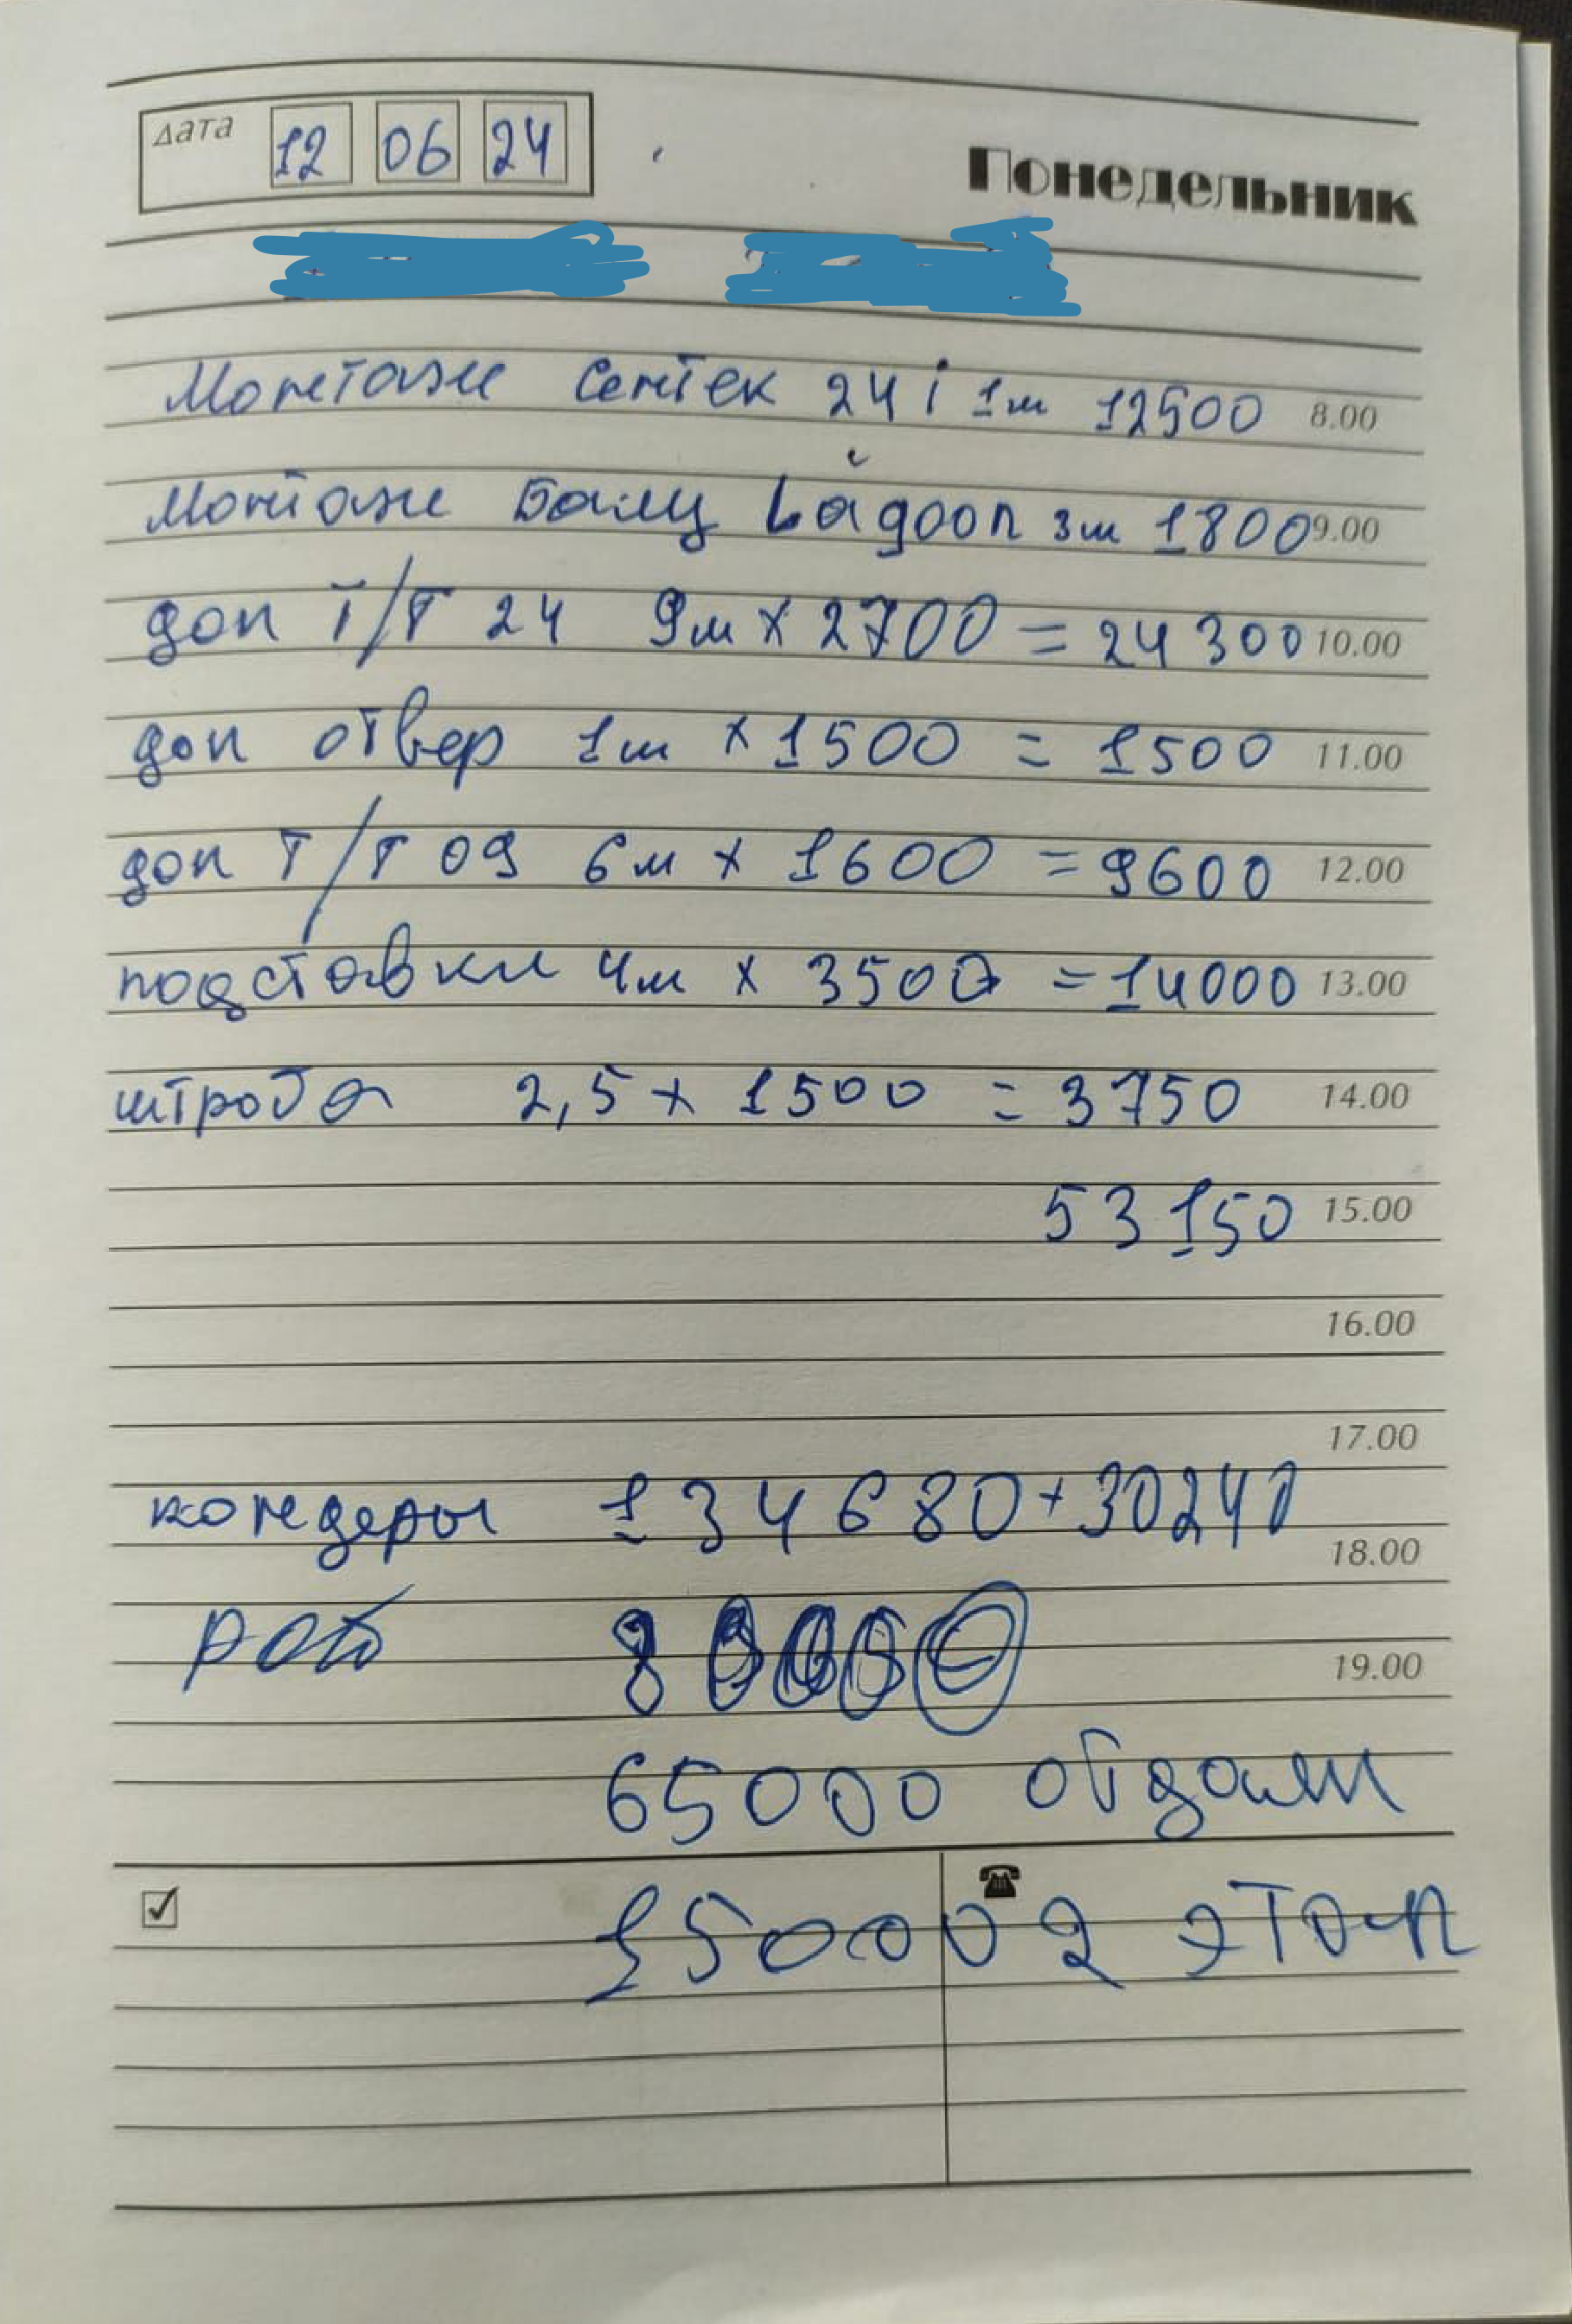 Дата 12 06 24
Понедельник
Монтаж Сентек 24 i 1ш 12500 8.00
Монтаж Баллу Lagoon 3ш 1800 9.00
доп Т/Т 24 9м x 2700 = 24 300 10.00
доп отвер 1ш x 1500 = 1500 11.00
доп Т/Т 09 6м x 1600 = 9600 12.00
подставки 4ш x 3500 = 14000 13.00
штроба 2,5 x 1500 = 3750 14.00
53 150 15.00
16.00
17.00
кондеры 134 680 + 30240
18.00
раб
19.00
65000 обдали
15000 2 этап